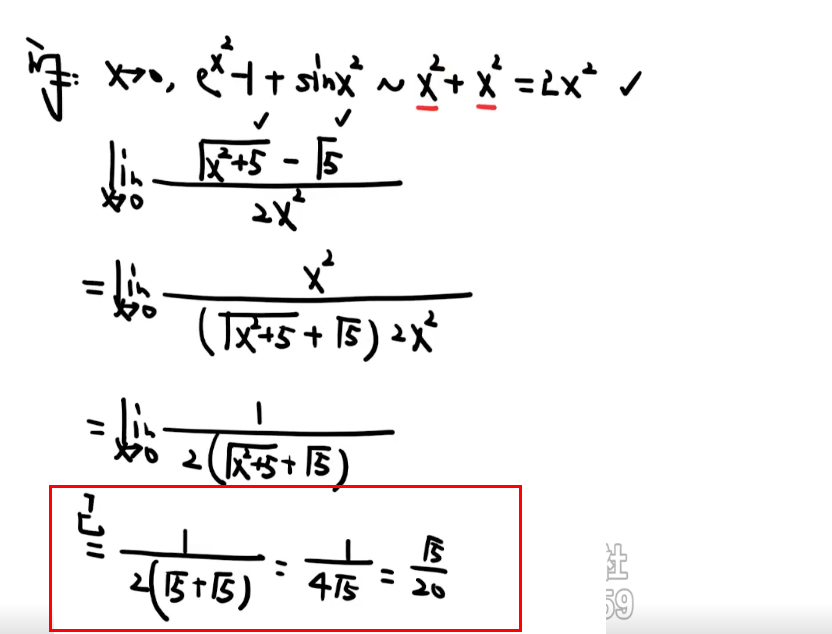 x→0, e^{x^2}-1+sinx^2 ~ x^2+x^2=2x^2 ✓
lim x→0 (√(x^2+5) - √5)/(2x^2)
=lim x→0 x^2/((√(x^2+5)+√5)2x^2)
=lim x→0 1/(2(√(x^2+5)+√5))
= 1/(2(√5+√5)) = 1/(4√5) = √5/20
社
59